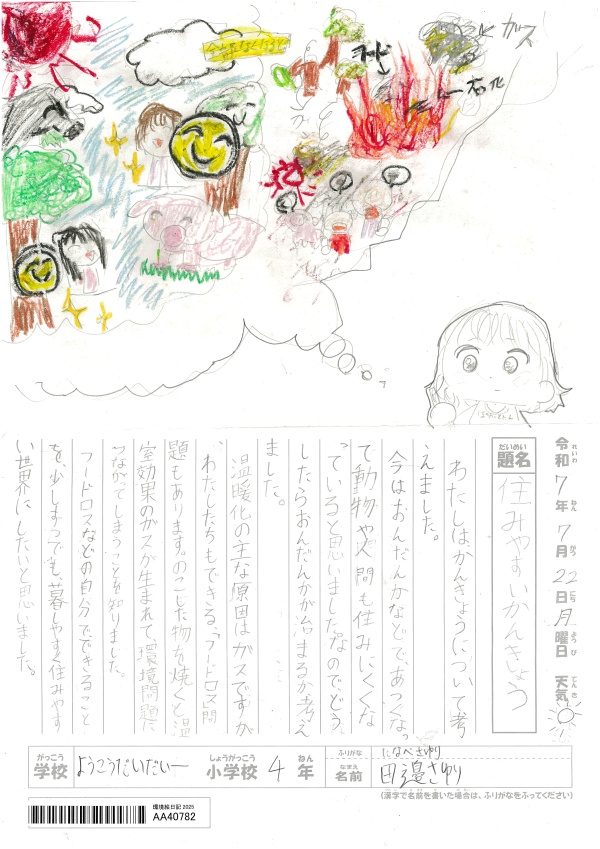 ガス
石化
令和7年7月22日月曜日 天気
れいわ ねん がつ にち ようび てんき
だいめい
題名
住みやすいかんきょう
わたしはかんきょうについて考
えました。
今はおんだんかなどで、あつくなっ
て動物や人間も住みにくくな
っていると思いました。なので、どう
したらおんだんかが治まるか考え
ました。
温暖化の主な原因はガスですが、
わたしたちもできる、「フードロス」問
題もあります。のこした物を焼くと温
室効果のガスが生まれて、環境問題に
つながてしまうことを知りました。
フードロスなどの自分でできること
を、少しずつでも、暮しやすく住みやす
い世界にしたいと思いました。
がっこう
学校
ようこうだいだい一
しょうがっこう
小学校
4
ねん
年
ふりがな
たなべさゆり
なまえ
名前
田邊さゆり
(漢字で名前を書いた場合は、ふりがなをふってください)
環境絵日記 2025
AA40782